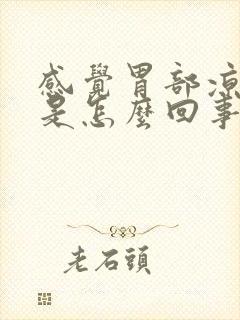 感覺胃部涼
是怎麼回事
老石頭